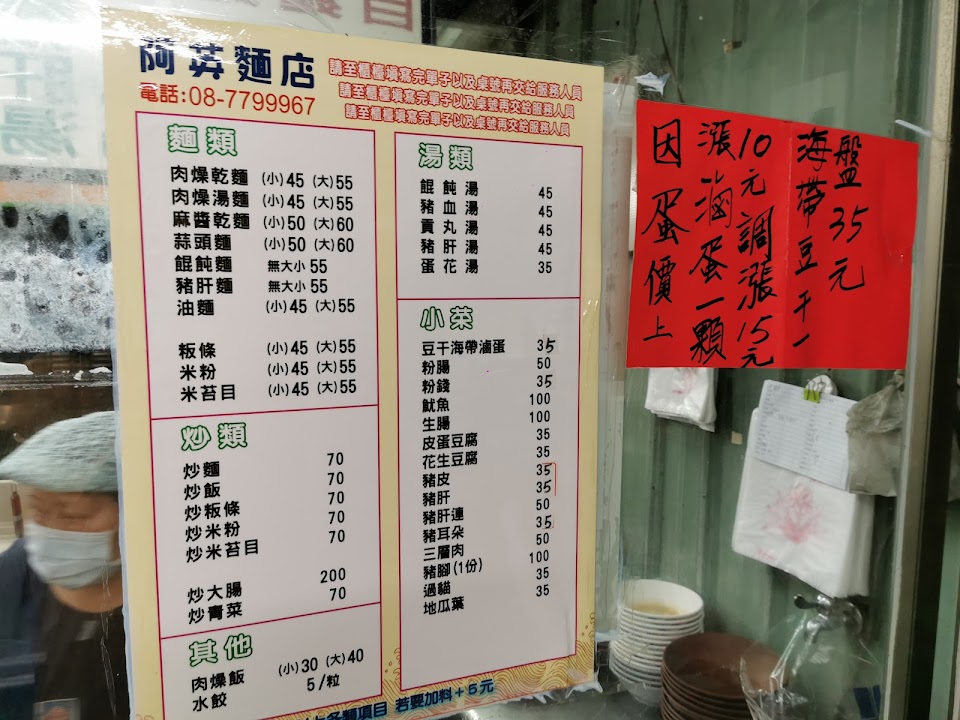 阿英麵店
電話:08-7799967
請至櫃檯填寫完單子以及桌號再交給服務人員
請至櫃檯填寫完單子以及桌號再交給服務人員
請至櫃檯填寫完單子以及桌號再交給服務人員
麵類
肉燥乾麵 (小)45 (大)55
肉燥湯麵 (小)45 (大)55
麻醬乾麵 (小)50 (大)60
蒜頭麵 (小)50 (大)60
餛飩麵 無大小 55
豬肝麵 無大小 55
油麵 (小)45 (大)55
粄條 (小)45 (大)55
米粉 (小)45 (大)55
米苔目 (小)45 (大)55
炒類
炒麵 70
炒飯 70
炒粄條 70
炒米粉 70
炒米苔目 70
炒大腸 200
炒青菜 70
其他
肉燥飯 (小)30 (大)40
水餃 5/粒
湯類
餛飩湯 45
豬血湯 45
貢丸湯 45
豬肝湯 45
蛋花湯 35
小菜
豆干海帶滷蛋 35
粉腸 50
粉錢 35
魷魚 100
生腸 100
皮蛋豆腐 35
花生豆腐 35
豬皮 35
豬肝 35
豬肝連 50
豬耳朵 35
三層肉 50
豬腳(1份) 100
過貓 35
地瓜葉 35
各麵項目 若要加料+5元
因蛋價上
漲滷蛋一顆
10元調漲15元
海帶豆干一
盤35元